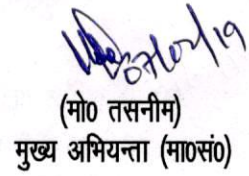 07/02/19
(मो0 तसनीम)
मुख्य अभियन्ता (मा0सं0)